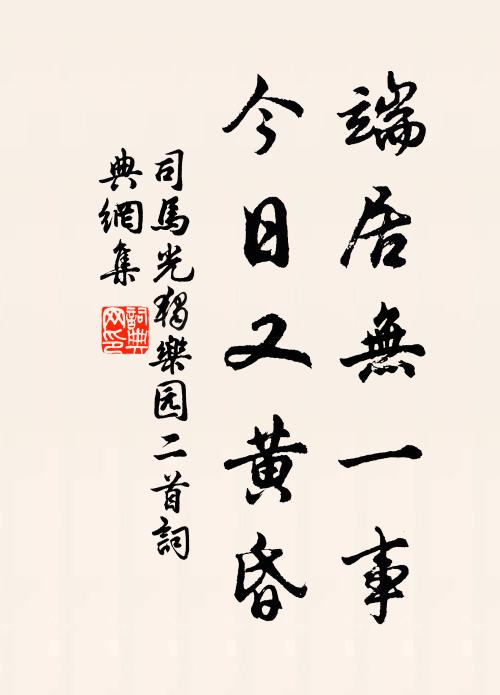 端居無一事
今日又黄昏
司馬光獨樂园二首詞
典網集
詞典
网印